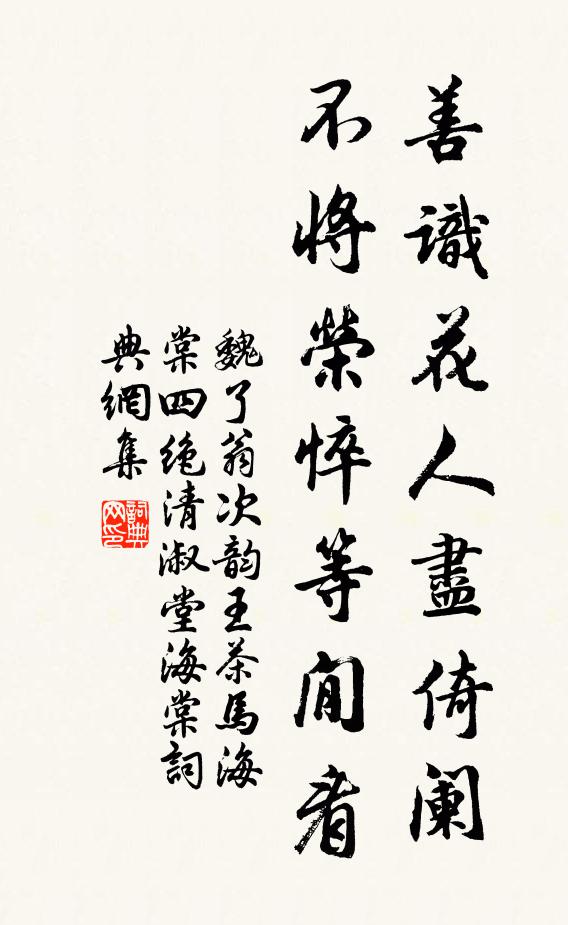 善識花人盡倚阑
不將榮悴等閒看
魏了翁次韵王茶馬海
棠四绝清淑堂海棠詞
典網集
詞典网印